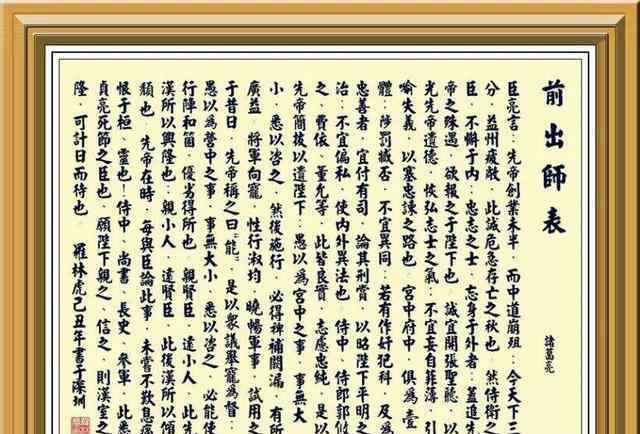 前出師表
諸葛亮
臣亮言：先帝創業未半，而中道崩殂；今天下三
分，益州疲敝，此誠危急存亡之秋也。然侍衛之
臣，不懈于内；忠志之士，忘身于外者：蓋追先
帝之殊遇，欲報之于陛下也。誠宜開張聖聽，以
光先帝遺德，恢弘志士之氣；不宜妄自菲薄，引
喻失義，以塞忠諫之路也。宫中府中，俱為壹
體；陟罰臧否，不宜異同：若有作奸犯科，及為
忠善者，宜付有司，論其刑賞，以昭陛下平明之
治；不宜偏私，使内外異法也。侍中、侍郎郭攸
之、費依、董允等，此皆良實，志慮忠純，是以
先帝簡拔以遺陛下：愚以為宫中之事，事無大
小，悉以咨之，然後施行，必得裨補闕漏，有所
廣益。將軍向寵，性行淑均，曉暢軍事，試用之
于昔日，先帝稱之曰“能”，是以衆議舉寵為督：
愚以為營中之事，事無大小，悉以咨之，必能使
行陣和箇，優劣得所也。親賢臣，遠小人，此先
漢所以興隆也；親小人，遠賢臣，此後漢所以傾
頹也。先帝在時，每與臣論此事，未嘗不歎息痛
恨于桓、靈也！侍中、尚書、長史、參軍，此悉
貞亮死節之臣也，願陛下親之、信之，則漢室之
隆，可計日而待也。 羅林虎己丑年書于深圳